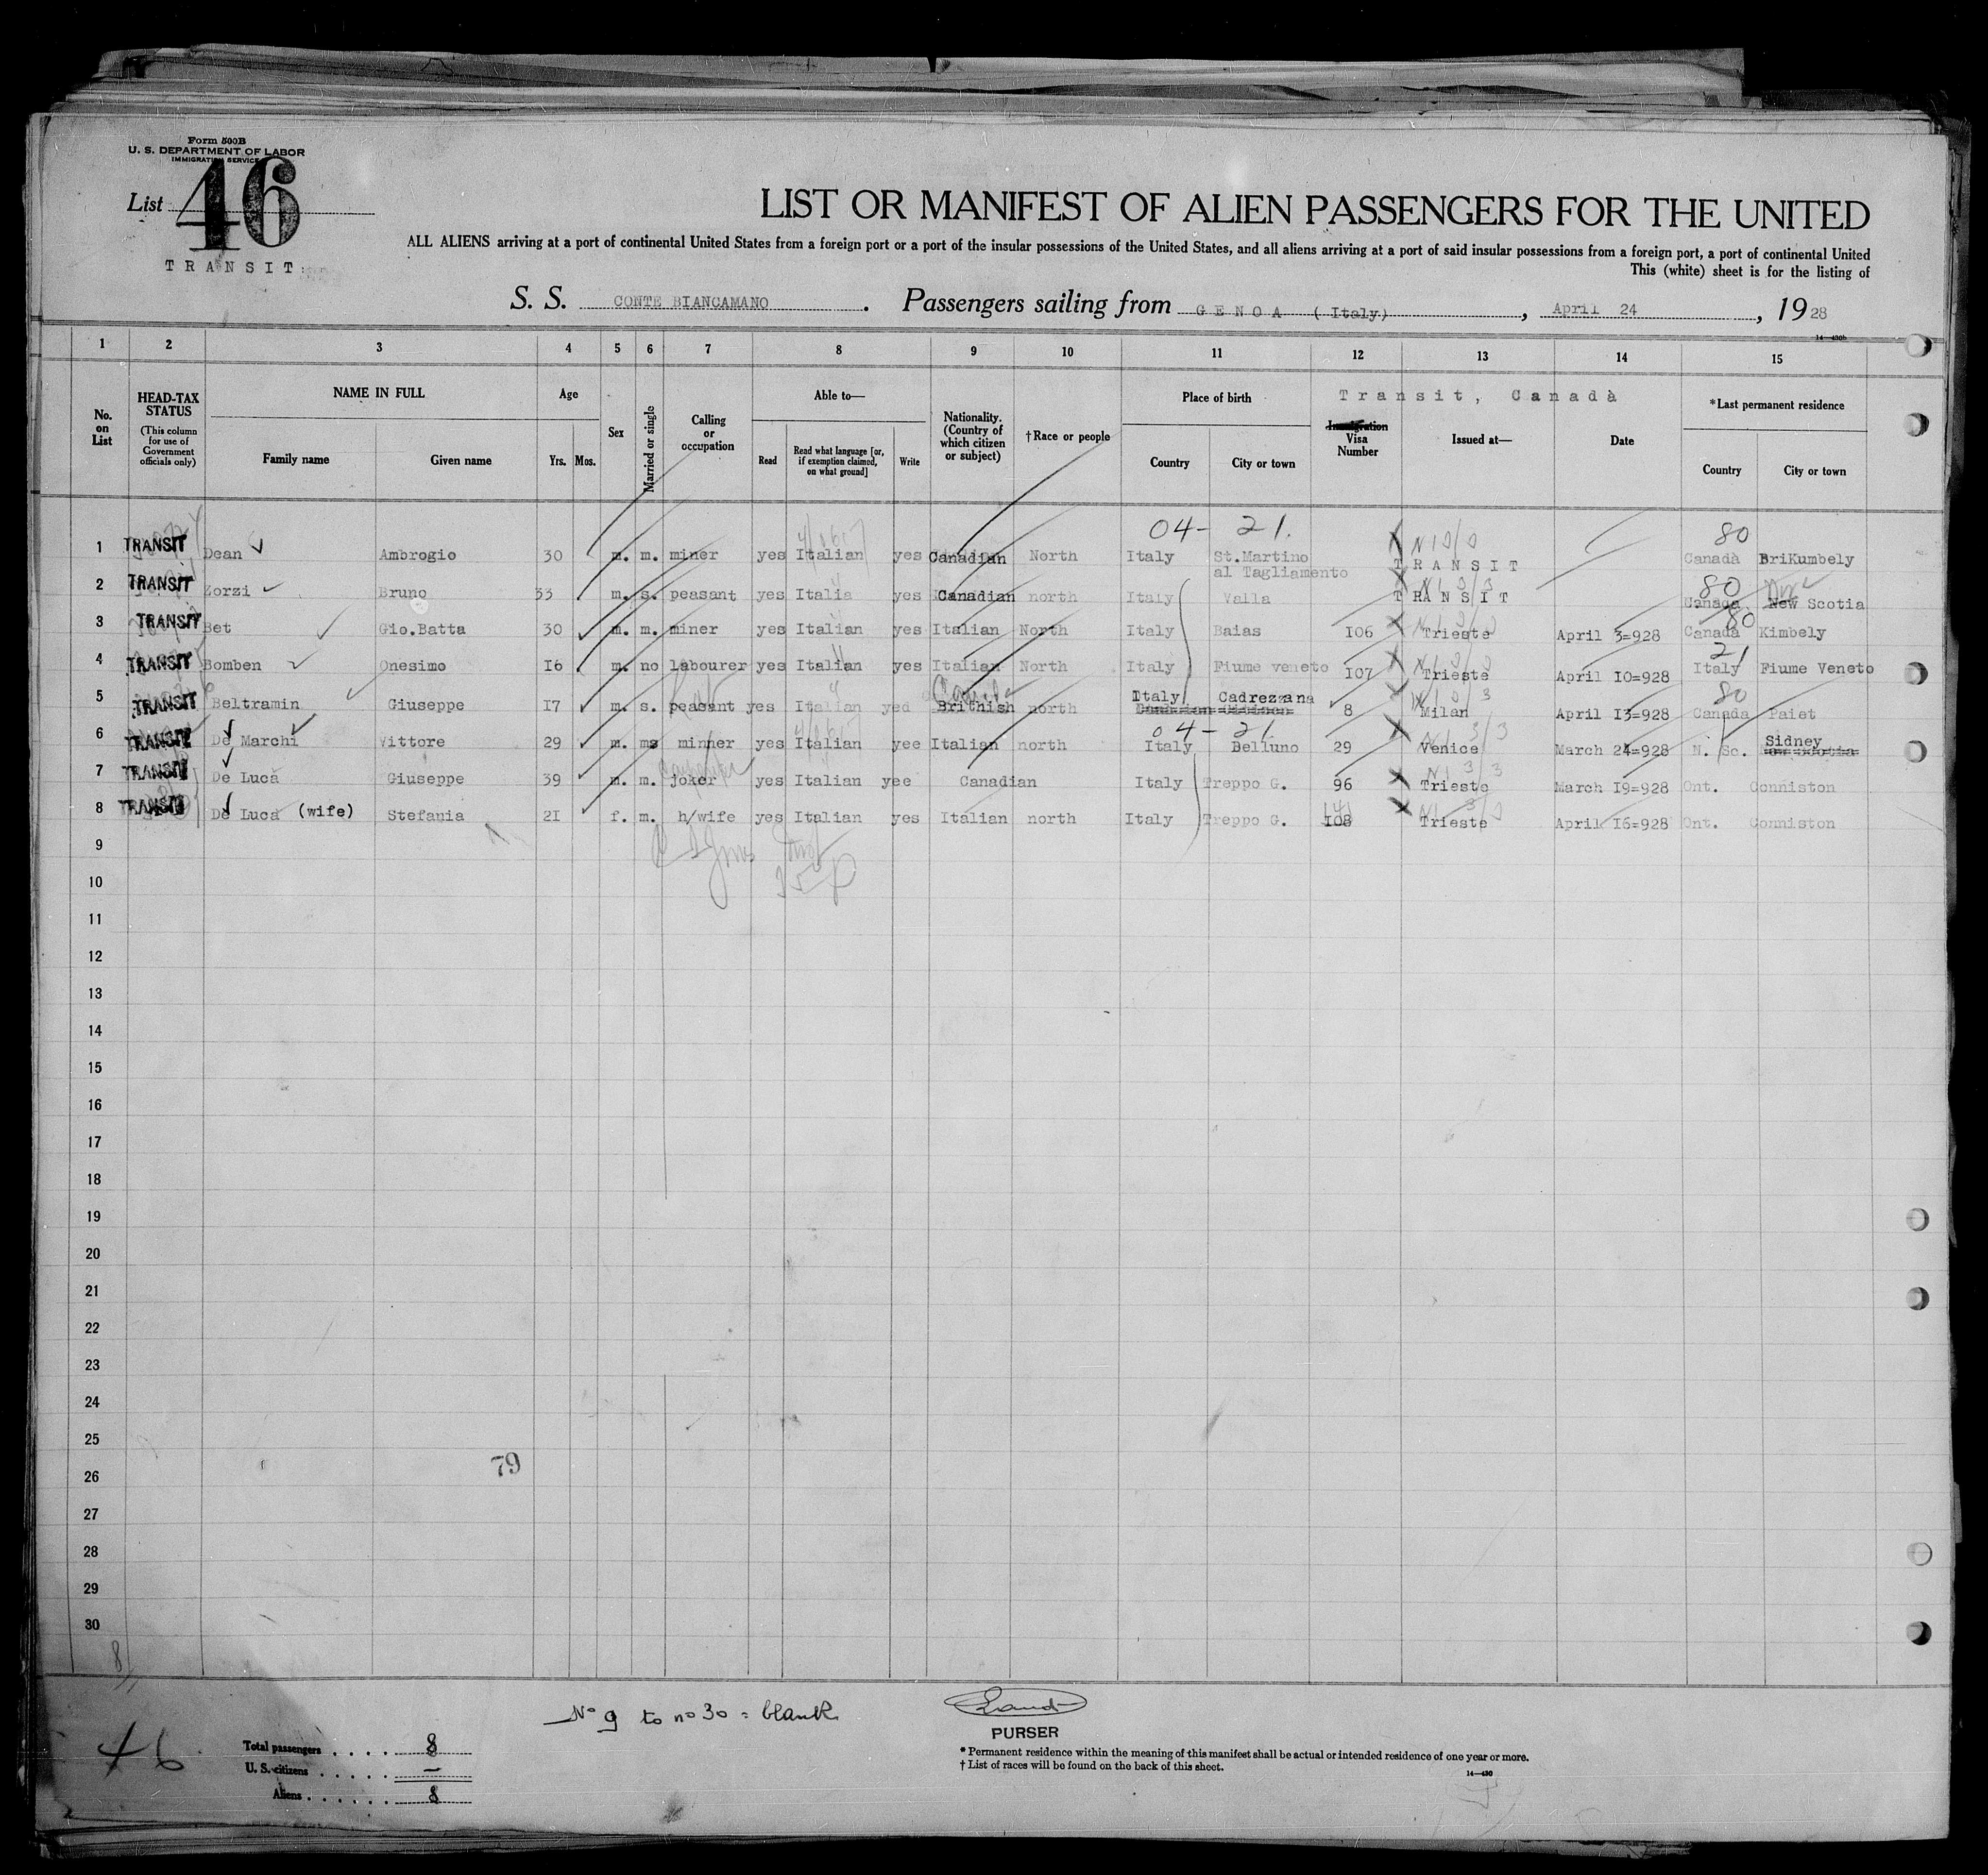 Form 500B
U. S. DEPARTMENT OF LABOR
IMMIGRATION SERVICE
List 46
TRANSIT
LIST OR MANIFEST OF ALIEN PASSENGERS FOR THE UNITED
ALL ALIENS arriving at a port of continental United States from a foreign port or a port of the insular possessions of the United States, and all aliens arriving at a port of said insular possessions from a foreign port, a port of continental United
This (white) sheet is for the listing of
S. S. CONTE BIANCAMANO. Passengers sailing from GENOA (Italy), April 24, 1928
14—430b
1 2 3 4 5 6 7 8 9 10 11 12 13 14 15
No. on List
HEAD-TAX STATUS
(This column for use of Government officials only)
NAME IN FULL
Family name Given name
Age
Yrs. Mos.
Sex
Married or single
Calling or occupation
Able to—
Read
Read what language [or, if exemption claimed, on what ground]
Write
Nationality. (Country of which citizen or subject)
†Race or people
Place of birth
Country City or town
Transit, Canadà
Immigration Visa Number
Issued at—
Date
*Last permanent residence
Country City or town
04- 21. 80
1 TRANSIT Dean Ambrogio 30 m. m. miner yes Italian yes Canadian North Italy St.Martino al Tagliamento TRANSIT Canadà BriKumbely
80
2 TRANSIT Zorzi Bruno 33 m. s. peasant yes Italia yes Canadian north Italy Valla TRANSIT Canada New Scotia
80
3 TRANSIT Bet Gio.Batta 30 m. m. miner yes Italian yes Italian North Italy Baias 106 Trieste April 3=928 Canadà Kimbely
21
4 TRANSIT Bomben Onesimo 16 m. no labourer yes Italian yes Italian North Italy Fiume veneto 107 Trieste April 10=928 Italy Fiume Veneto
80
5 TRANSIT Beltramin Giuseppe 17 m. s. peasant yes Italian yed Brithish north Italy Cadrezzana 8 Milan April 13=928 Canada Paiet
04-21.
6 TRANSIT De Marchi Vittore 29 m. ms minner yes Italian yee Italian north Italy Belluno 29 Venice March 24=928 N. Sc. Sidney
7 TRANSIT De Luca Giuseppe 39 m. m. joker yes Italian yee Canadian Italy Treppo G. 96 Trieste March 19=928 Ont. Conniston
8 TRANSIT De Luca (wife) Stefania 21 f. m. h/wife yes Italian yes Italian north Italy Treppo G. 108 Trieste April 16=928 Ont. Conniston
9
10
11
12
13
14
15
16
17
18
19
20
21
22
23
24
25
79
26
27
28
29
30
No 9 to no 30 = blank
PURSER
46
Total passengers 8
U. S. citizens —
Aliens 8
* Permanent residence within the meaning of this manifest shall be actual or intended residence of one year or more.
† List of races will be found on the back of this sheet.
14—430